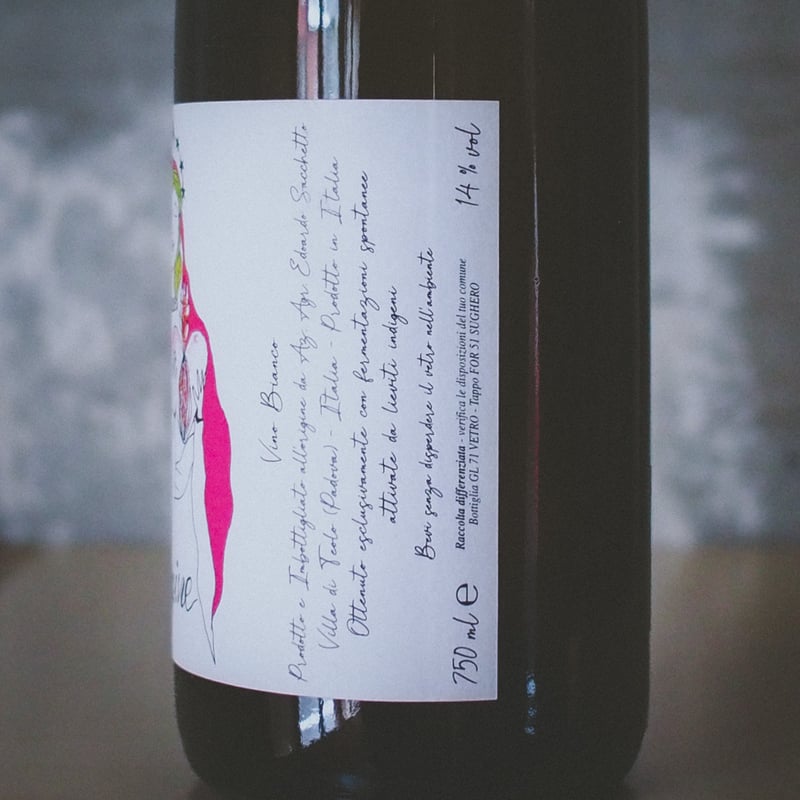 Vino Bianco
Prodotto e Imbottigliato all'origine da Az. Agr. Edoardo Sacchetto
Villa di Teolo (Padova) - Italia - Prodotto in Italia
Ottenuto esclusivamente con fermentazioni spontanee
attivate da lieviti indigeni
Bevi senza disperdere il vetro nell'ambiente
Raccolta differenziata - verifica le disposizioni del tuo comune
Bottiglia GL 71 VETRO - Tappo FOR 51 SUGHERO
750 ml e 14 % vol